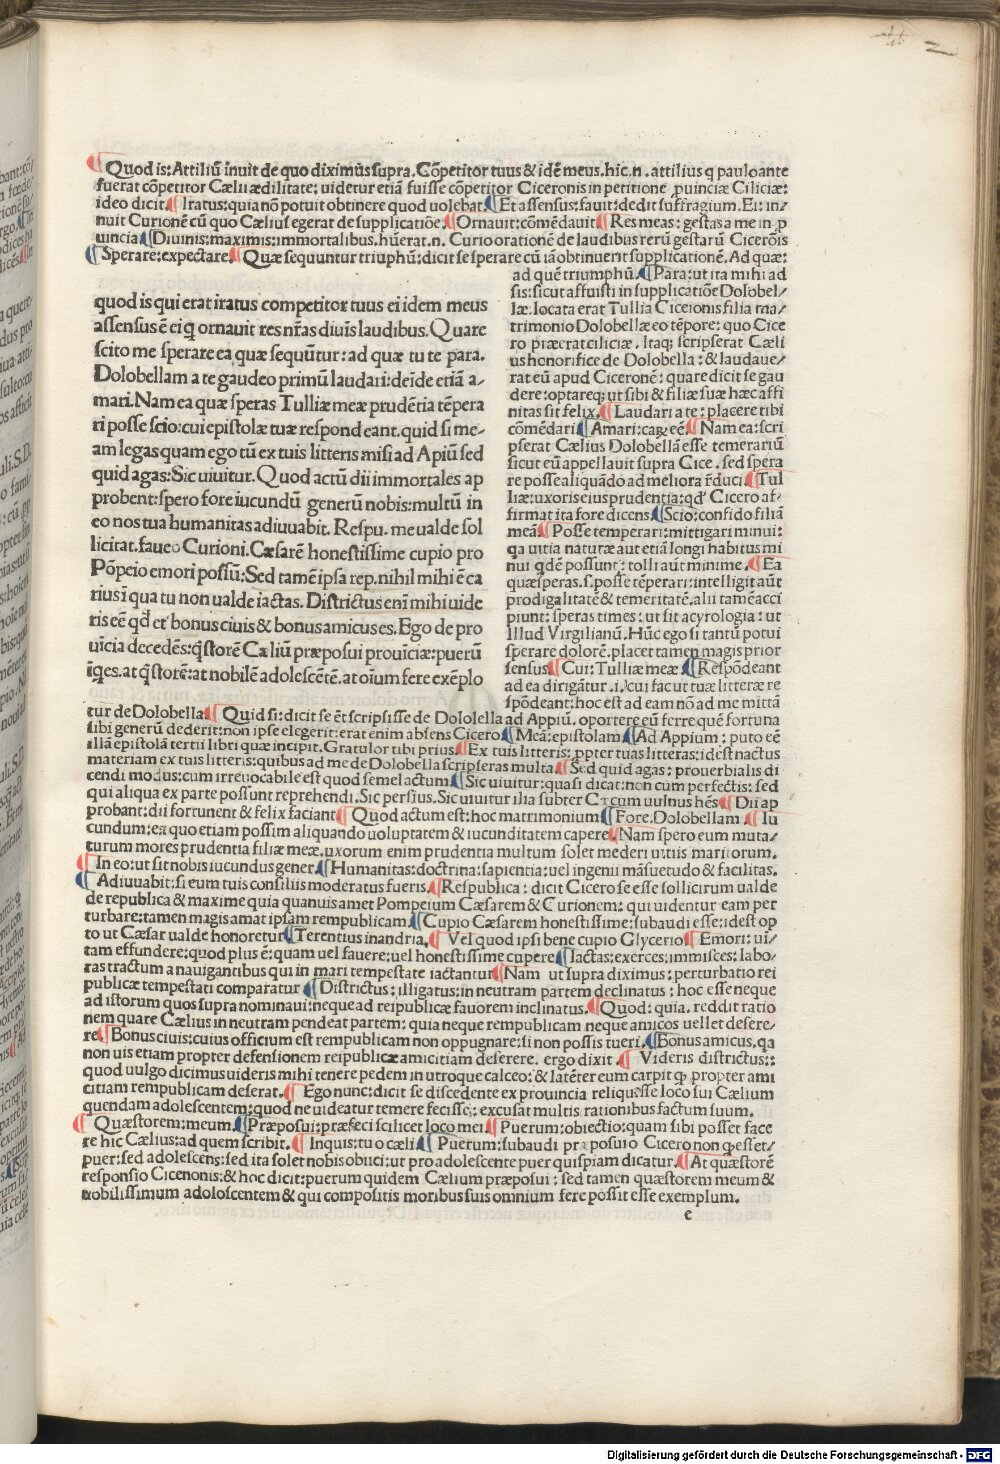 Quod is: Attiliū inuit de quo diximus supra. Cōpetitor tuus & idē meus. hic .n. attilius q paulo ante
fuerat cōpetitor Cælii ædilitate: uidetur etiā fuisse cōpetitor Ciceronis in petitione puinciæ Ciliciæ:
ideo dicit. Iratus: quia nō potuit obtinere quod uolebat. Et assensus: fauit: dedit suffragium. Ei: in-
nuit Curionē cū quo Cælius egerat de supplicatiōe. Ornauit: cōmēdauit Res meas: gestas a me in p
uincia Diuinis: maximis: immortalibus. hūerat .n. Curio orationē de laudibus rerū gestarū Cicerōis
Sperare: expectare. Quæ sequuntur triūphū: dicit se sperare cū iā obtinuerit supplicationē. Ad quæ:
ad quē triumphū. Para: ut ita mihi ad
sis: sicut affuisti in supplicatiōe Dolobel/
læ. locata erat Tullia Ciceronis filia ma/
trimonio Dolobellæ eo tēpore: quo Cice
ro præerat ciliciæ. Itaq; scripserat Cæli
us honorifice de Dolobella: & laudaue/
rat eū apud Ciceronē: quare dicit se gau
dere: optareq; ut sibi & filiæ suæ hæc affi
nitas sit felix. Laudari a te: placere tibi
cōmēdari Amari: caȝ eē Nam ea: scri
pserat Cælius Dolobellā esse temerariū
sicut eū appellauit supra Cice. sed spera
re posse aliquādo ad meliora r̄duci Tul
liæ: uxoris eius prudentia: qd' Cicero af-
firmat ita fore dicens Scio: confido filiā
meā Posse temperari: mittigari minui:
qa uitia naturæ aut etiā longi habitus mi
nui qdē possunt: tolli aūt minime. Ea
quæ speras .s. posse tēperari: intelligit aūt
prodigalitatē & temeritatē. alii tamē acci
piunt: speras times: ut sit acyrologia: ut
illud Virgilianū. Hūc ego si tantū potui
sperare dolorē. placet tamen magis prior
sensus Cui: Tulliæ meæ Respōdeant
ad ea dirigātur .i. cui fac ut tuæ litteræ re
spōdeant: hoc est ad eam nō ad me mittā
quod is qui erat iratus competitor tuus ei idem meus
assensus ē ei q ornauit res nr̄as diuīs laudibus. Quare
scito me sperare ea quæ sequūtur: ad quæ tu te para.
Dolobellam a te gaudeo primū laudari: deīde etiā a-
mari. Nam ea quæ speras Tulliæ meæ prudētia tēpera
ri posse scio: cui epistolæ tuæ respondeant. quid si me-
am legas quam ego tū ex tuis litteris misi ad Apiū sed
quid agas: Sic uiuitur. Quod actū dii immortales ap
probent: spero fore iucundū generū nobis: multū in
eo nos tua humanitas adiuuabit. Respu. me ualde sol
licitat. faueo Curioni. Cæsarē honestissime cupio pro
Pōpeio emori possū: Sed tamē ipsa rep. nihil mihi ē ca
rius ī qua tu non ualde iactas. Districtus enī mihi uide
ris eē qd et bonus ciuis & bonus amicus es. Ego de pro
uīcia decedēs: q̄storē Cæliū præposui prouīciæ: puerū
īqes. at q̄storē: at nobilē adolescētē. at oīum fere exēplo
tur de Dolobella Quid si: dicit se ēt scripsisse de Dololella ad Appiū. oportere eū ferre quē fortuna
sibi generū dederit: non ipse elegerit: erat enim absens Cicero Meā: epistolam Ad Appium: puto eē
illā epistolā tertii libri quæ incipit. Gratulor tibi prius. Ex tuis litteris: ppter tuas litteras: idest nactus
materiam ex tuis litteris: quibus ad me de Dolobella scripseras multa Sed quid agas: prouerbialis di
cendi modus: cum irreuocabile est quod semel actum Sic uiuitur: quasi dicat: non cum perfectis: sed
qui aliqua ex parte possunt reprehendi. Sic persius. Sic uiuitur ilia subter Cæcum uulnus hēs Dii ap
probant: dii fortunent & felix faciant Quod actum est: hoc matrimonium Fore. Dolobellam Iu
cundum: ex quo etiam possim aliquando uoluptatem & iucunditatem capere Nam spero eum muta/
turum mores prudentia filiæ meæ. uxorum enim prudentia multum solet mederi uitiis maritorum.
In eo: ut sit nobis iucundus gener Humanitas: doctrina: sapientia: uel ingenii māsuetudo & facilitas.
Adiuuabit: si eum tuis consiliis moderatus fueris. Respublica: dicit Cicero se esse sollicitum ualde
de republica & maxime quia quanuis amet Pompeium Cæsarem & Curionem: qui uidentur eam per
turbare: tamen magis amat ipsam rempublicam Cupio Cæsarem honestissime: subaudi esse: idest op
to ut Cæsar ualde honoretur Terentius in andria. Vel quod ipsi bene cupio Glycerio Emori: ui/
tam effundere: quod plus ē: quam uel fauere: uel honestissime cupere Iactas: exerces: immisces: labo/
ras tractum a nauigantibus qui in mari tempestate iactantur Nam ut supra diximus: perturbatio rei
publicæ tempestati comparatur Districtus: illigatus: in neutram partem declinatus: hoc esse neque
ad istorum quos supra nominaui: neque ad reipublicæ fauorem inclinatus. Quod: quia. reddit ratio
nem quare Cælius in neutram pendeat partem: quia neque rempublicam neque amicos uellet desere-
re Bonus ciuis: cuius officium est rempublicam non oppugnare: si non possis tueri. Bonus amicus. qa
non uis etiam propter defensionem reipublicæ amicitiam deserere. ergo dixit. Videris districtus:
quod uulgo dicimus uideris mihi tenere pedem in utroque calceo: & latēter eum carpit q propter ami
citiam rempublicam deserat. Ego nunc: dicit se discedente ex prouincia reliquesse loco sui Cælium
quendam adolescentem: quod ne uideatur temere fecisse: excusat multis rationibus factum suum.
Quæstorem: meum. Præposui: præfeci scilicet loco mei Puerum: obiectio: quam sibi posset face
re hic Cælius: ad quem scribit. Inquis: tu o cæli Puerum: subaudi præposui o Cicero non q esset/
puer: sed adolescens: sed ita solet nobis obiici: ut pro adolescente puer quispiam dicatur. At quæstorē
responsio Ciceronis: & hoc dicit: puerum quidem Cælium præposui: sed tamen quæstorem meum &
nobilissimum adoloscentem & qui compositis moribus suis omnium fere possit esse exemplum.
e
Digitalisierung gefördert durch die Deutsche Forschungsgemeinschaft - DFG